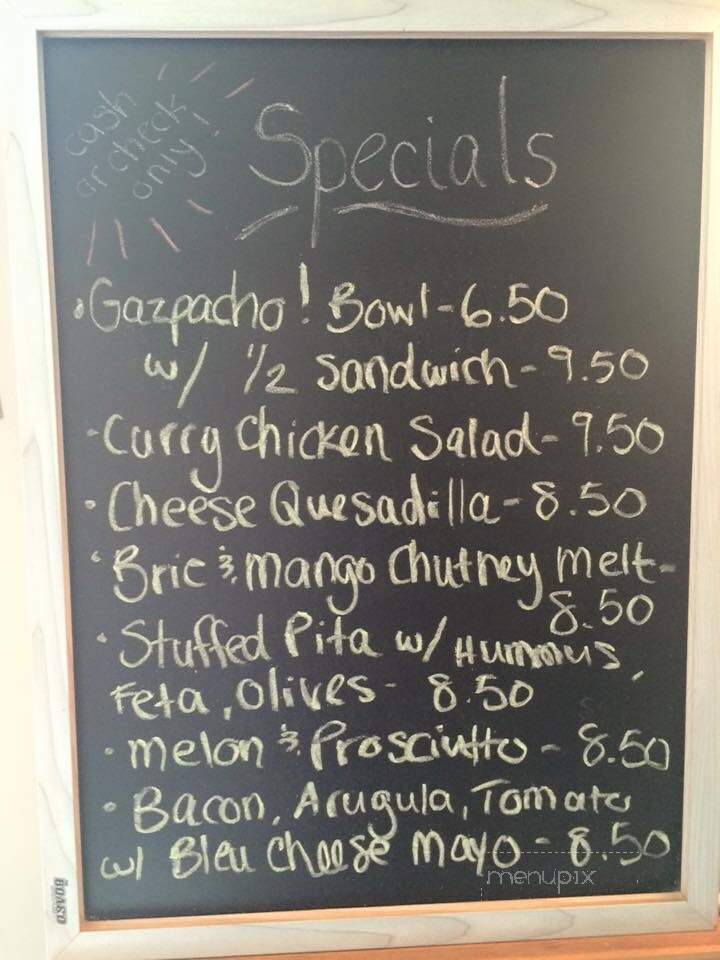 cash
or check
only!
Specials
• Gazpacho! Bowl - 6.50
w/ 1/2 Sandwich - 9.50
• Curry Chicken Salad - 9.50
• Cheese Quesadilla - 8.50
• Brie & mango Chutney melt -
8.50
• Stuffed Pita w/ Hummus,
Feta, Olives - 8.50
• melon & Prosciutto - 8.50
• Bacon, Arugula, Tomato
w/ Bleu Cheese Mayo - 8.50
menupix
BOARD